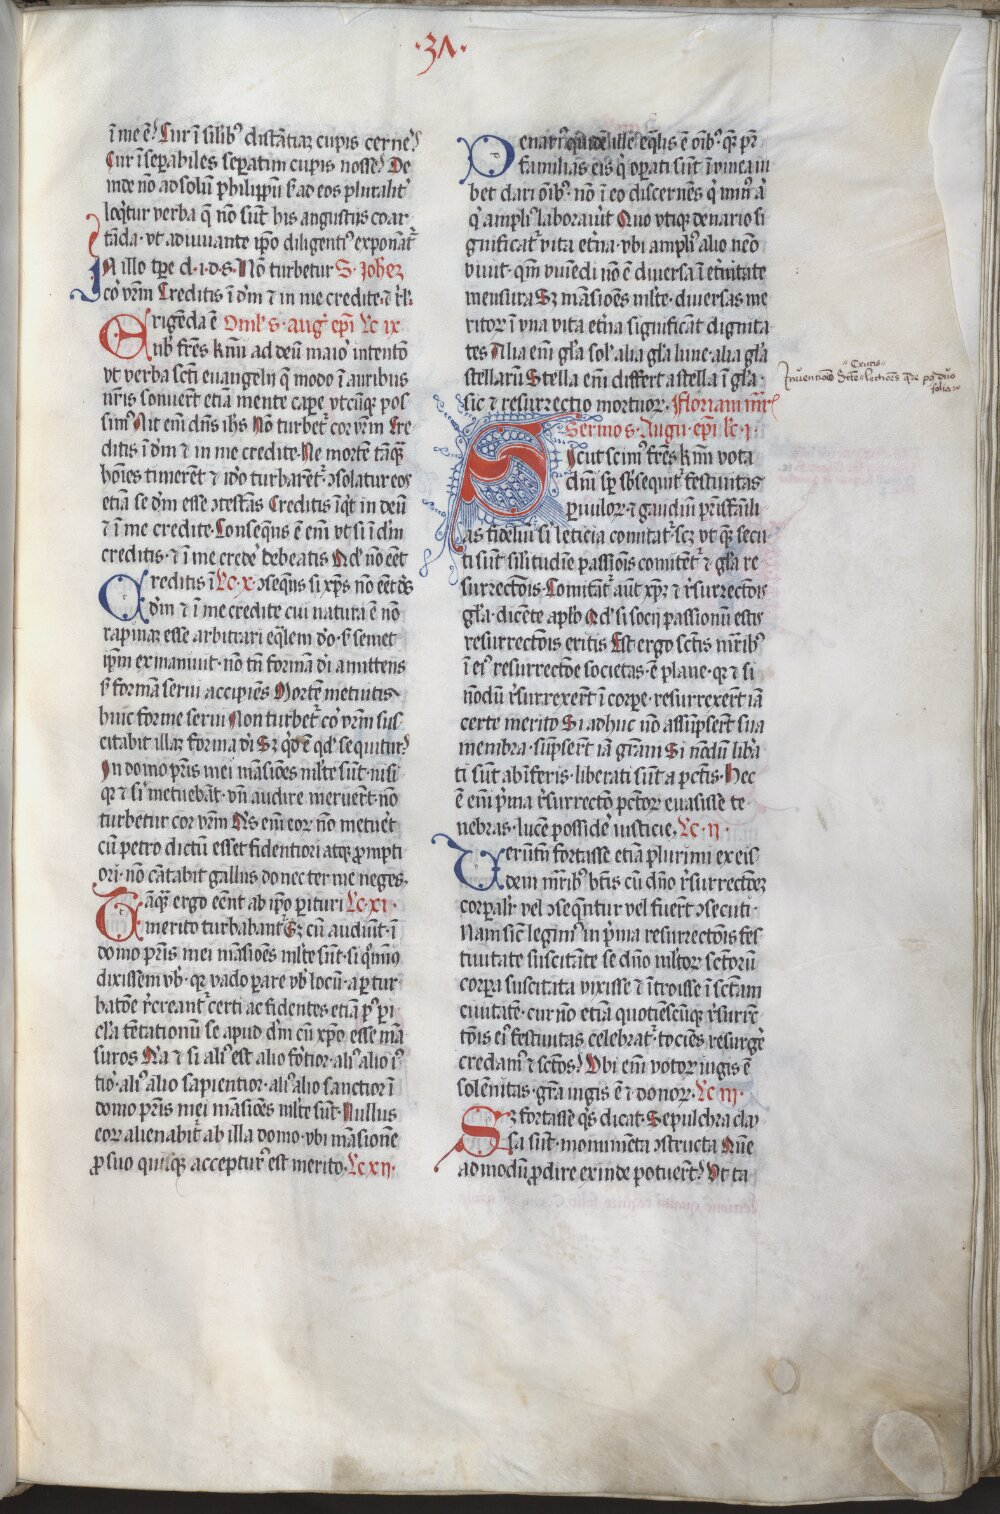 ·31·
ī me ē? Cur ī silib᷒ distātiaꝫ cupis cerne᷒?
Cur īseꝑabiles seꝑatim cupis nosse? De
inde nō ad solū philippū sꝫ ad eos pluralit᷒
loq̇tur verba q̄ nō sūt his angustijs coar
tāda· vt adiuuante ip̄o diligenti᷒ exponāt᷒
IN illo tp̄e d·i·d·s· Nō turbetur S. Joheꝫ
cor vr̄m Creditis ī dm̄ ⁊ in me credite·⁊ rl᷒
Erigēda ē Oml᷒ s· aug᷒ ep̄i Lc ix
nob᷒ fr̄es kmī ad deū maior intentō
vt verba scti euangelij q̄ modo ī auribus
nr̄is sonuer̄t etiā mente cape᷒ vtcūqꝫ pos
sim᷒ Ait em̄ dn̄s ihs Nō turbet᷒ cor vr̄m Cre
ditis ī dm̄ ⁊ in me credite· Ne mortē tāqꝫ
hoīes timer̄et ⁊ iō turbar̄et᷒· ꝯsolatur eos
etiā se dm̄ esse ꝯtestās Creditis īq̇t in deū
⁊ ī me credite· Conseq̄ns ē em̄ vt si ī dm̄
creditis· ⁊ ī me crede᷒ debeatis Qd᷒ nō eēt
Creditis ī Lc·x· ꝯseq̄ns si xp̄s nō eēt de᷒
dm̄ ⁊ ī me credite cui natura ē nō
rapinaꝫ esse arbitrari eq̄lem dō· sꝫ semet
ip̄m exinaniuit· nō tn̄ formā dī amittens
sꝫ formā serui accipiēs Mortē metuitis
huic forme serui Non turbet᷒ cor vr̄m sus
citabit illaꝫ forma dī Sꝫ q̇d ē qd᷒ sequitur?
In domo pr̄is mei māsiōes ml̄te sūt· nisi
qꝛ ⁊ si metuebāt· vn̄ audire meruer̄t· nō
turbetur cor vr̄m Q̇s em̄ eoꝝ nō metuet
cū petro dictū esset fidentiori atqꝫ ꝓmpti
ori· nō cātabit gallus donec ter me neges·
Tāqꝫ ergo eēnt ab ip̄o ꝑituri Lc·xi·
merito turbabant᷒ Sꝫ cū audiūt· ī
domo pr̄is mei māsiōes ml̄te sūt· si q̇mī᷒
dixissem vb᷒· qꝛ vado ꝑare vb᷒ locū· a ꝑtur
batōe r᷒creant᷒ certi ac fidentes etiā p᷒ ꝑi
cl᷒a tētationū se apud dm̄ cū xp̄o esse mā
suros Nā ⁊ si ali᷒ est alio fortior· ali᷒ alio i᷒
tior· ali᷒ alio sapientior· ali᷒ alio sanctior ī
domo pr̄is mei māsiōes ml̄te sūt· Nullus
eoꝝ alienabit᷒ ab illa domo· vbi māsionē
ꝓ suo quisqꝫ accepturus est merito· Lc xij·
Denari᷒ quidē ille eq̄lis ē oīb᷒· quē pr̄
familias eis q̇ oꝑati sūt ī vinea iu
bet dari oīb᷒· nō ī eo discernēs q̇ min᷒ a᷒
q̇ ampli᷒ laborauīt Quo vtiqꝫ denario si
gnificat᷒ vita et᷒na· vbi ampli᷒ alio nemo
viuit· qm̄ viuēdi nō ē diuersa ī et᷒nitate
mensura Sꝫ māsiōes ml̄te· diuersas me
ritoꝝ ī vna vita et᷒na significāt dignita
tes Alia em̄ gl᷒a sol᷒· alia gl᷒a lune· alia gl᷒a
stellarū Stella em̄ differt a stella ī gl᷒a·
sic ⁊ resurrectio mortuoꝝ. Floriani mr̄
Sermo s· Augu· ep̄i· lc·i·
Sicut scim᷒ fr̄es kmī vota
dm̄ sp̄ sbsequit᷒ festiuitas
puuloꝝ· ⁊ gaudiū pr̄isfāili
as fideliū si leticia comitat᷒· scꝫ vt qꝫ secu
ti sūt silitudīe passiōis comitēt᷒ ⁊ gl᷒a re
surrectōis· Comitāt᷒ aūt xp̄ꝫ ⁊ r᷒surrectōis
gl᷒a· dicēte apl̄o Qd᷒ si socij passionū estis
resurrectōis eritis Est ergo sctīs mr̄ib᷒
ī ei᷒ resurrectōe societas· ē plane· qꝛ ⁊ si
nōdū r᷒surrexer̄t ī corpe· resurrexer̄t iā
certe merito Si adhuc nō assūpser̄t sua
membra· sūpser̄t iā grām Si nōdū liba᷒
ti sūt ab īferis· liberati sūt a pctīs· Hec
ē em̄ p᷒ma r᷒surrectō pctōꝝ euasisse te
nebras· lucē possidē iusticie. Lc·ij·
Verūtn̄ fortasse etiā plurimi ex eis
dem mr̄ib᷒ btīs cū dn̄o r᷒surrectōeꝫ
corpalr᷒ vel ꝯseq̄ntur vel fuer̄t ꝯsecuti·
Nam sic legim᷒ in p᷒ma resurrectōis fes
tiuitate suscitāte se dn̄o ml̄toꝝ sctōrū
corpa suscitata vixisse ⁊ ītroisse ī sctam
ciuitatē· cur nō etiā quotiēscūqꝫ r᷒surre
tōis ei᷒ festiuitas celebrat᷒· tociēs resurge᷒
credam᷒ ⁊ sctōs? Vbi em̄ votoꝝ iugis ē
solēnitas· grā iugis ē ⁊ donoꝝ. Lc iij·
Sꝫ fortasse q̇s dicat· Sepulchra clau
sa sūt· monumēta ꝯstructa Quē
admodū ꝓdire exinde potuer̄t? Vt ta
Crucis
Inuentionis scte lectiones quere post duo
folia